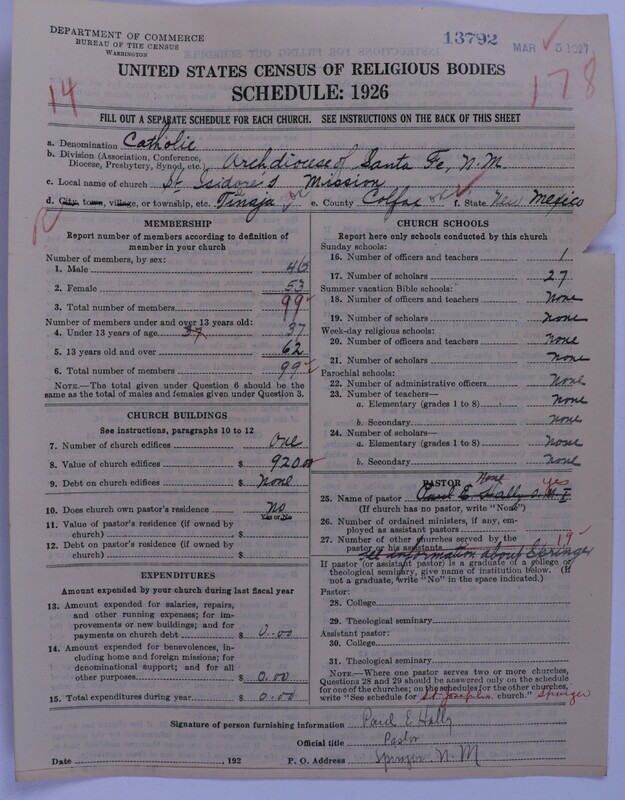 DEPARTMENT OF COMMERCE
BUREAU OF THE CENSUS
WASHINGTON
13792
MAR 5 1927
UNITED STATES CENSUS OF RELIGIOUS BODIES
SCHEDULE: 1926
14
178
FILL OUT A SEPARATE SCHEDULE FOR EACH CHURCH. SEE INSTRUCTIONS ON THE BACK OF THIS SHEET
a. Denomination Catholic
b. Division (Association, Conference, Diocese, Presbytery, Synod, etc.) Archdiocese of Santa Fe, N.M.
c. Local name of church St Isidore's Mission
d. City, town, village, or township, etc. Tinaja e. County Colfax f. State New Mexico
MEMBERSHIP
Report number of members according to definition of member in your church
Number of members, by sex:
1. Male 46
2. Female 53
3. Total number of members 99
Number of members under and over 13 years old:
4. Under 13 years of age 37 37
5. 13 years old and over 62
6. Total number of members 99
NOTE.—The total given under Question 6 should be the same as the total of males and females given under Question 3.
CHURCH BUILDINGS
See instructions, paragraphs 10 to 12
7. Number of church edifices One
8. Value of church edifices $ 920.00
9. Debt on church edifices $ None
10. Does church own pastor's residence? No
Yes or No
11. Value of pastor's residence (if owned by church) $
12. Debt on pastor's residence (if owned by church) $
EXPENDITURES
Amount expended by your church during last fiscal year
13. Amount expended for salaries, repairs, and other running expenses; for improvements or new buildings; and for payments on church debt $ 0.00
14. Amount expended for benevolences, including home and foreign missions; for denominational support; and for all other purposes $ 0.00
15. Total expenditures during year $ 0.00
CHURCH SCHOOLS
Report here only schools conducted by this church
Sunday schools:
16. Number of officers and teachers 1
17. Number of scholars 27
Summer vacation Bible schools:
18. Number of officers and teachers None
19. Number of scholars None
Week-day religious schools:
20. Number of officers and teachers None
21. Number of scholars None
Parochial schools:
22. Number of administrative officers None
23. Number of teachers—
a. Elementary (grades 1 to 8) None
b. Secondary None
24. Number of scholars—
a. Elementary (grades 1 to 8) None
b. Secondary None
PASTOR
None yes
25. Name of pastor Paul E. Hally
(If church has no pastor, write "None")
26. Number of ordained ministers, if any, employed as assistant pastors
27. Number of other churches served by the pastor or his assistants 19
see information about Springer
If pastor (or assistant pastor) is a graduate of a college or theological seminary, give name of institution below. (If not a graduate, write "No" in the space indicated.)
Pastor:
28. College
29. Theological seminary
Assistant pastor:
30. College
31. Theological seminary
NOTE.—Where one pastor serves two or more churches, Questions 28 and 29 should be answered only on the schedule for one of the churches; on the schedules for the other churches, write "See schedule for St Josephs church." Springer
Signature of person furnishing information Paul E. Hally
Official title Pastor
Date , 192 P. O. Address Springer N. M